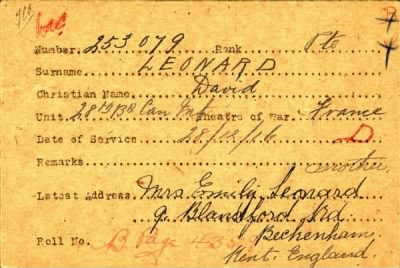 Number. 253079 Rank Pte
Surname LEONARD
Christian Name David
Unit. 28th Bn Can Inf. Theatre of War. France
Date of Service 28/12/16 D
Remarks mother,
Latest Address. Mrs Emily Leonard
9. Blandford Rd
Roll No. B Page 435 Beckenham,
Kent. England.